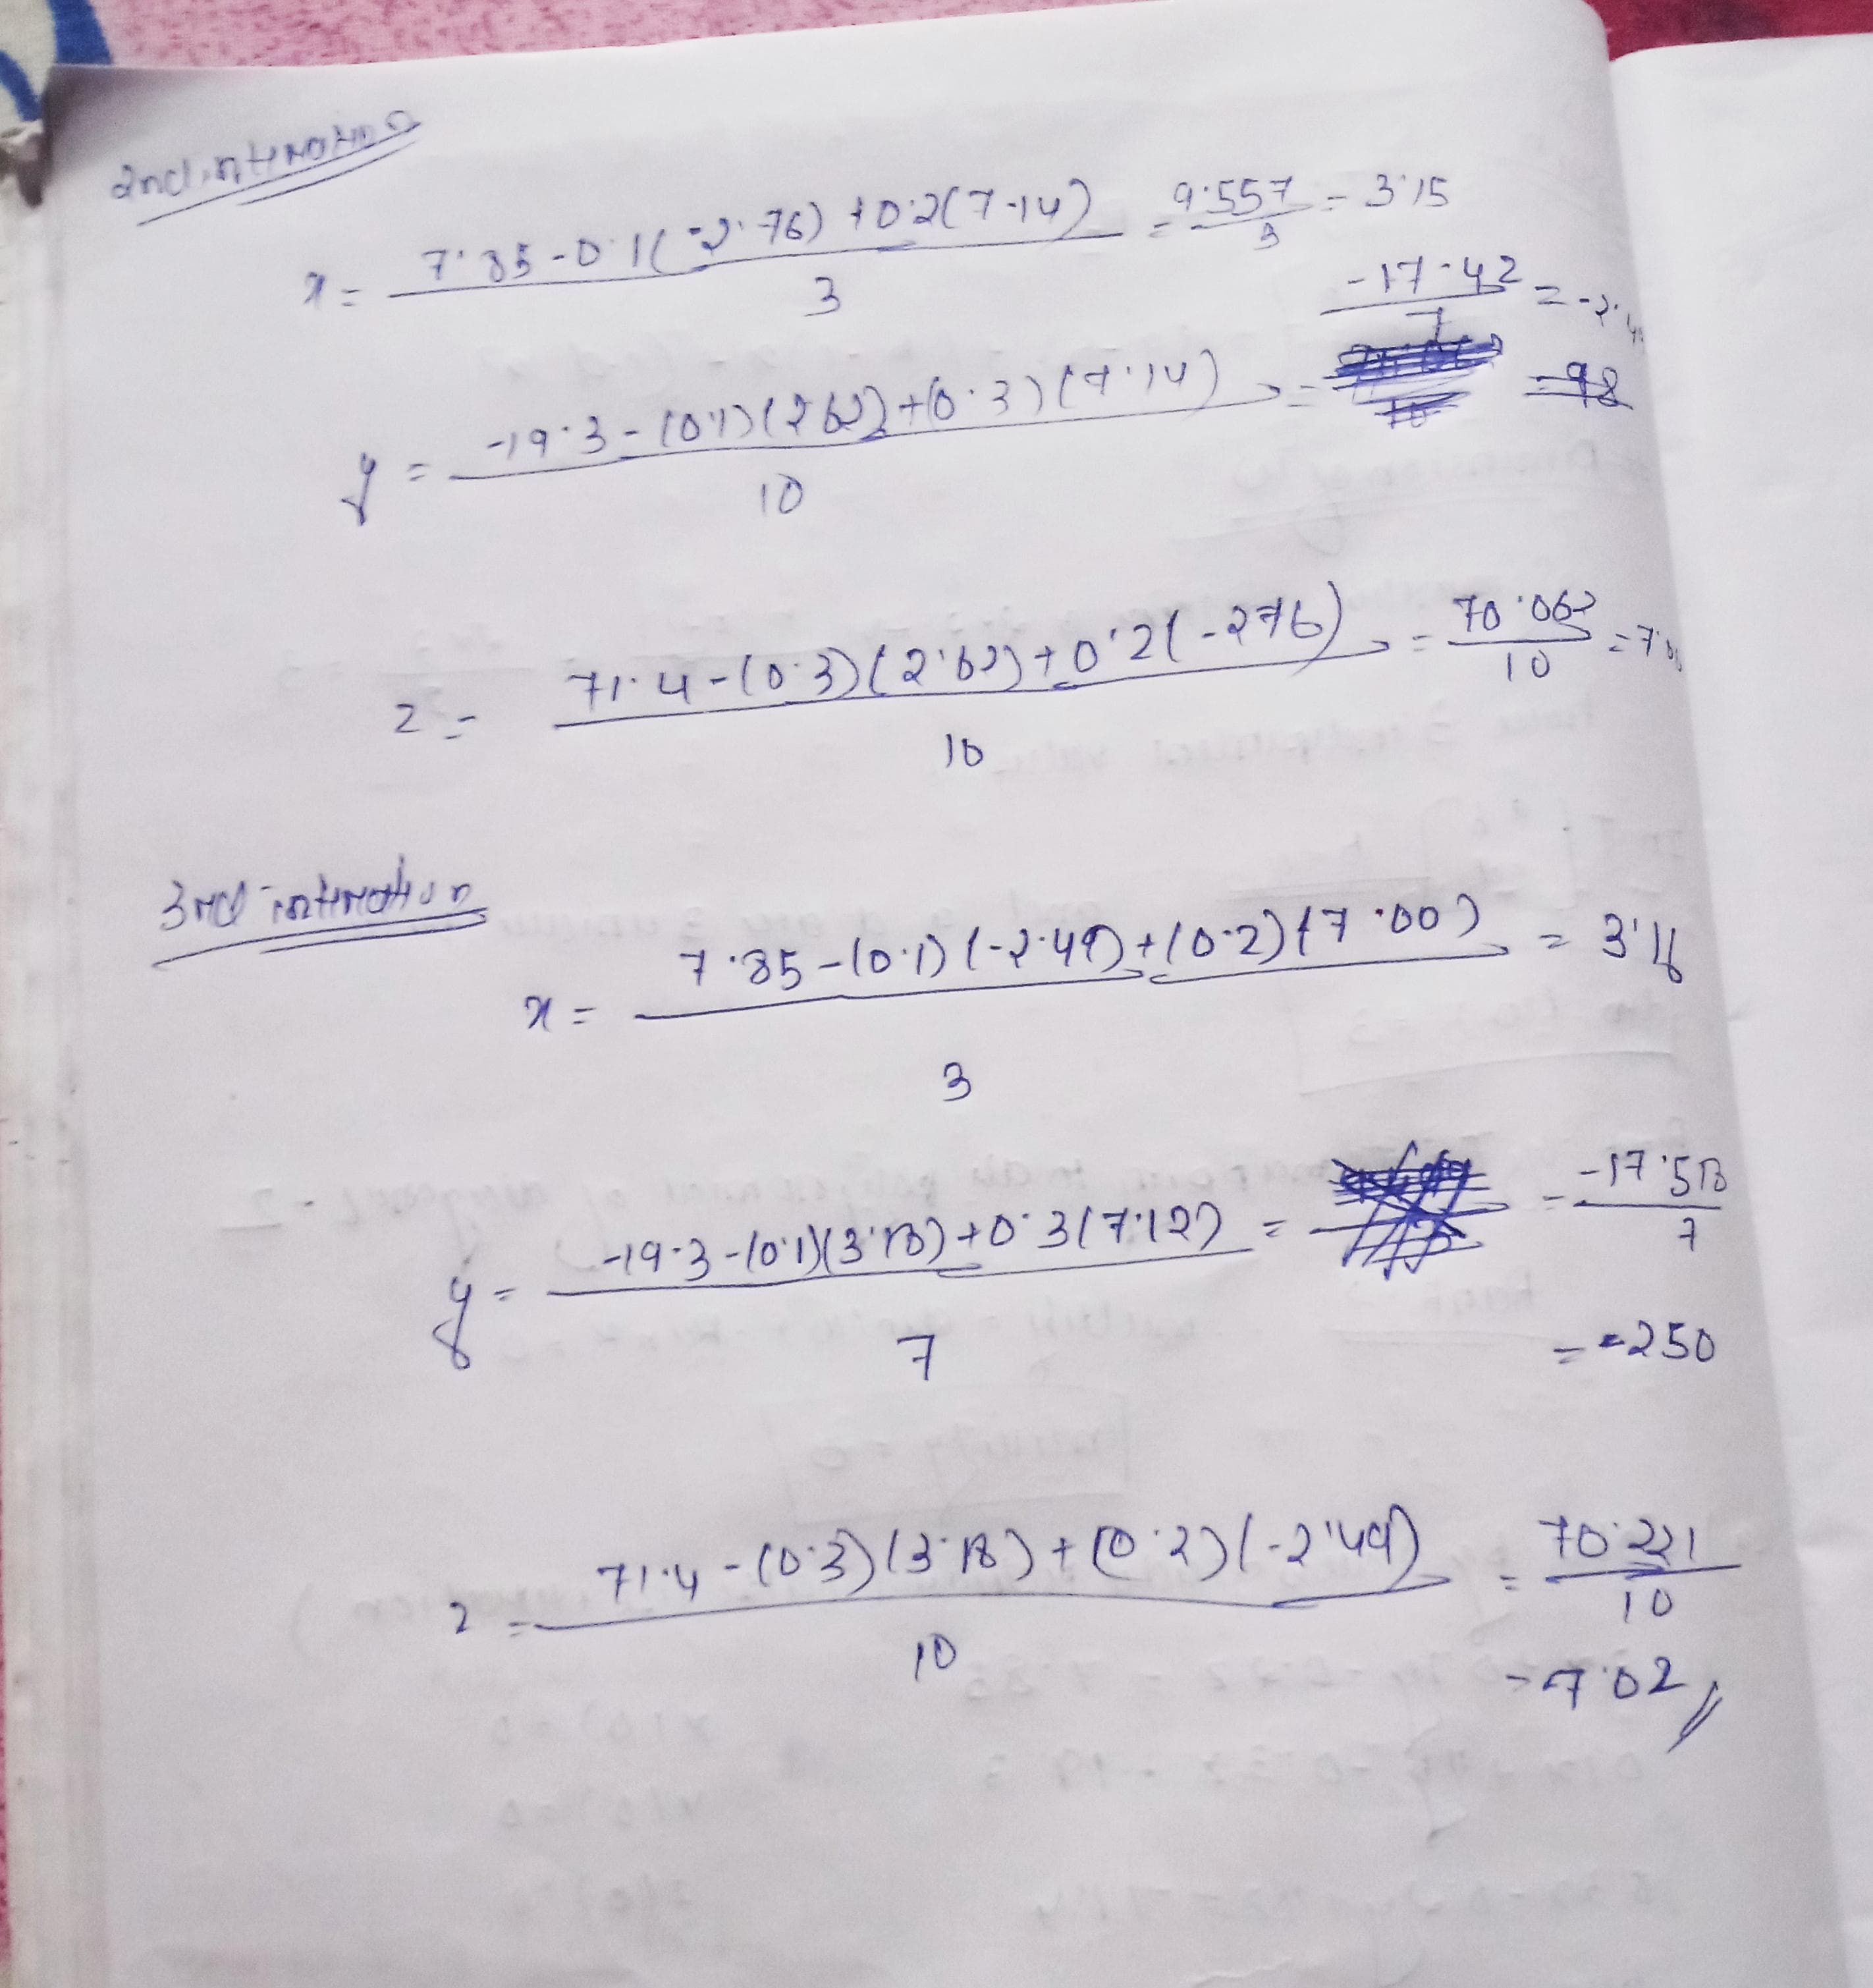 2nd intiration
x = 7.85 - 0.1(-2.76) + 0.2(7.14) / 3 = 9.557 / 3 = 3.15
-17.42 / 7 = -2.4
y = -19.3 - (0.1)(262) + (0.3)(7.14) / 10 = = 98
z = 71.4 - (0.3)(2.62) + 0.2(-276) / 10 = 70.062 / 10 = 7.00
3rd intiration
x = 7.85 - (0.1)(-2.49) + (0.2)(7.00) / 3 = 3.16
y = -19.3 - (0.1)(3.13) + 0.3(7.12) / 7 = = -17.513 / 7
= -250
z = 71.4 - (0.3)(3.18) + (0.2)(-2.49) / 10 = 70.221 / 10
= 7.02